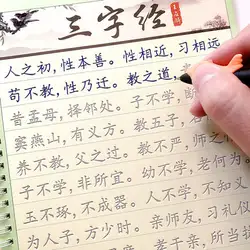 三字经
人之初，性本善。性相近，习相远
苟不教，性乃迁。教之道，
昔孟母，择邻处。子不学，
窦燕山，有义方。教五子，名
养不教，父之过。教不严，师之
子不学，非所宜。幼不学，老何为
玉不琢，不成器。人不学，不知义
为人子，方少时。亲师友，习礼仪